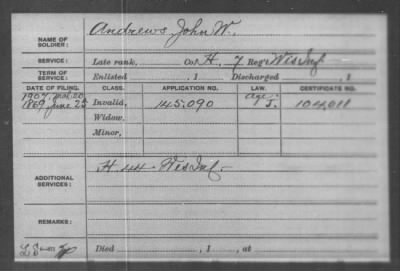 NAME OF SOLDIER: Andrews John W.
SERVICE: Late rank, Co. H, 7 Reg't Wis Inf
TERM OF SERVICE: Enlisted , 1 Discharged , 1
DATE OF FILING. CLASS. APPLICATION NO. LAW. CERTIFICATE NO.
1907, Mar. 20 Age
1869 June 25 Invalid, 145,090 J. 104,011
Widow,
Minor,
ADDITIONAL SERVICES: H 44 Wis Inf.
REMARKS:
Died , 1 , at